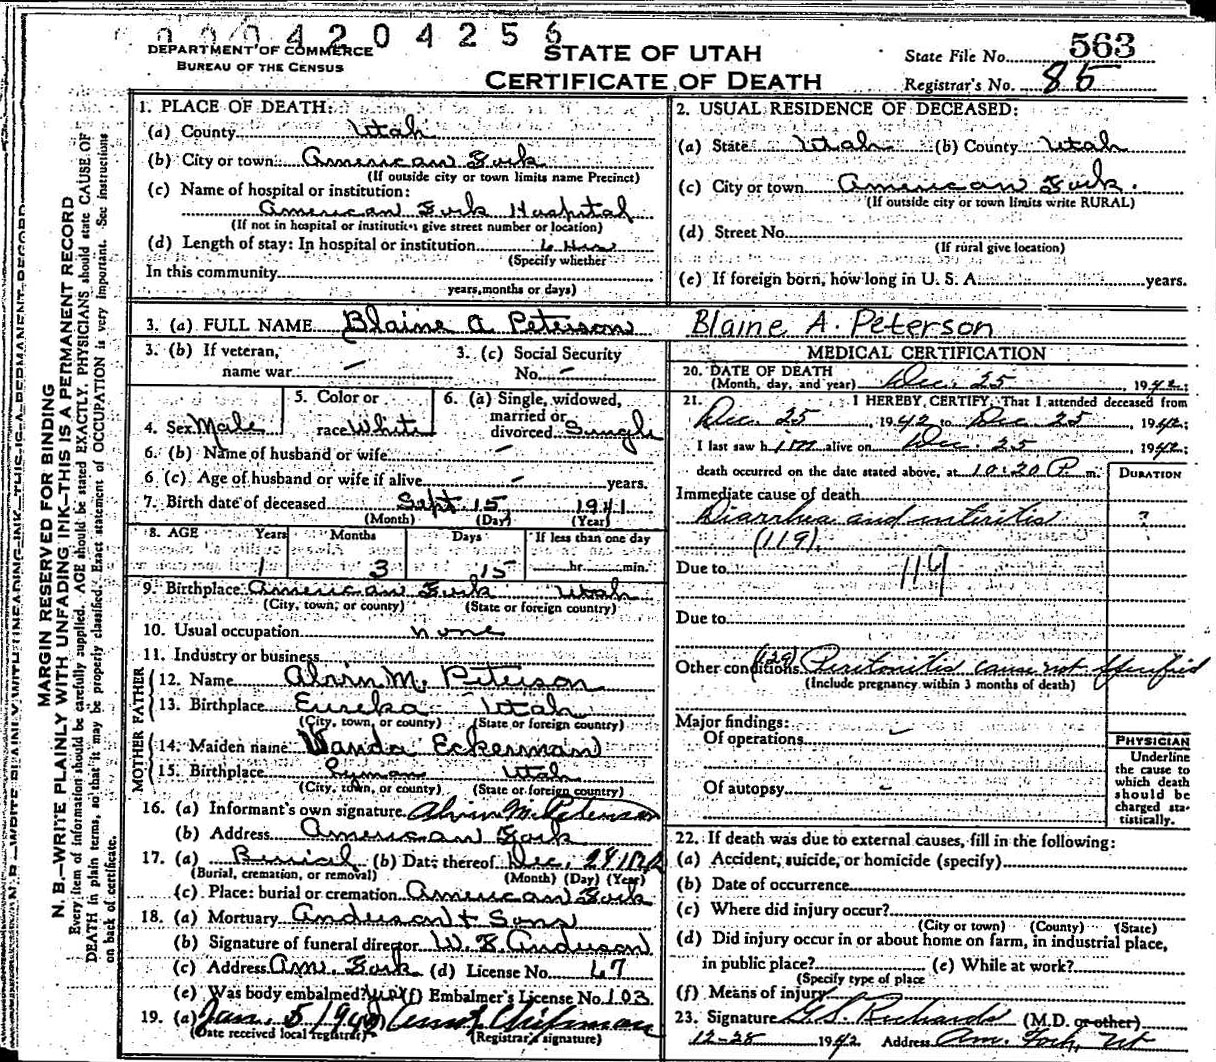 0004204256
DEPARTMENT OF COMMERCE
BUREAU OF THE CENSUS
STATE OF UTAH
CERTIFICATE OF DEATH
State File No. 563
Registrar's No. 85
MARGIN RESERVED FOR BINDING
N. B.—WRITE PLAINLY WITH UNFADING INK—THIS IS A PERMANENT RECORD
Every item of information should be carefully supplied. AGE should be stated EXACTLY. PHYSICIANS should state CAUSE OF
DEATH in plain terms, so that it may be properly classified. Exact statement of OCCUPATION is very important. See instructions
on back of certificate.
1. PLACE OF DEATH:
(a) County Utah
(b) City or town American Fork
(If outside city or town limits name Precinct)
(c) Name of hospital or institution:
American Fork Hospital
(If not in hospital or institution give street number or location)
(d) Length of stay: In hospital or institution 6 Hrs
(Specify whether
In this community
years, months or days)
2. USUAL RESIDENCE OF DECEASED:
(a) State Utah (b) County Utah
(c) City or town American Fork.
(If outside city or town limits write RURAL)
(d) Street No.
(If rural give location)
(e) If foreign born, how long in U. S. A. years.
3. (a) FULL NAME Blaine A Peterson Blaine A. Peterson
3. (b) If veteran, name war –
3. (c) Social Security No. –
4. Sex Male
5. Color or race White
6. (a) Single, widowed, married or divorced Single
6. (b) Name of husband or wife –
6 (c) Age of husband or wife if alive – years.
7. Birth date of deceased Sept 15 1941
(Month) (Day) (Year)
8. AGE Years Months Days If less than one day
1 3 15 hr. min.
9. Birthplace American Fork Utah
(City, town, or county) (State or foreign country)
10. Usual occupation none
11. Industry or business
FATHER
12. Name Alvin M. Peterson
13. Birthplace Eureka Utah
(City, town, or county) (State or foreign country)
MOTHER
14. Maiden name Vanda Eckerman
15. Birthplace Lyman Utah
(City, town, or county) (State or foreign country)
16. (a) Informant's own signature Alvin M. Peterson
(b) Address American Fork
17. (a) Burial (b) Date thereof Dec. 28 1942
(Burial, cremation, or removal) (Month) (Day) (Year)
(c) Place: burial or cremation American Fork
18. (a) Mortuary Anderson & Sons
(b) Signature of funeral director W. E. Anderson
(c) Address Am. Fork (d) License No. 67
(e) Was body embalmed? yes (f) Embalmer's License No. 103
19. (a) Jan. 5 194 Chipman
(Date received local registrar) (Registrar's signature)
MEDICAL CERTIFICATION
20. DATE OF DEATH
(Month, day, and year) Dec. 25, 1942;
21. I HEREBY CERTIFY, That I attended deceased from
Dec. 25, 1942 to Dec 25, 1942;
I last saw him alive on Dec. 25, 1942;
death occurred on the date stated above, at 10:20 P. m.
DURATION
Immediate cause of death
Diarrhea and enteritis ?
(119).
Due to 119
Due to
Other conditions (129) Peritonitis cause not specified
(Include pregnancy within 3 months of death)
Major findings:
Of operations –
Of autopsy –
PHYSICIAN
Underline
the cause to
which death
should be
charged sta-
tistically.
22. If death was due to external causes, fill in the following:
(a) Accident, suicide, or homicide (specify)
(b) Date of occurrence
(c) Where did injury occur?
(City or town) (County) (State)
(d) Did injury occur in or about home on farm, in industrial place,
in public place? (e) While at work?
(Specify type of place
(f) Means of injury
23. Signature G.S. Richards (M.D. or other)
12-28 1942 Address Am. Fork, Ut